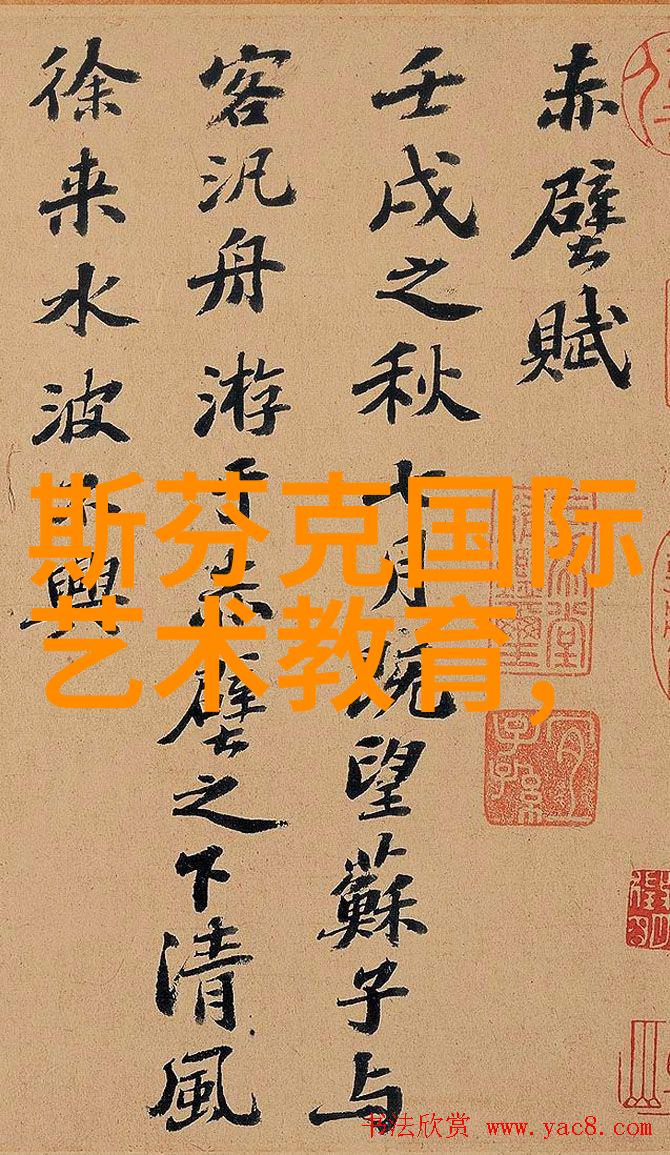 赤壁賦
壬戌之秋七月既望蘇子与
客汎舟游于赤壁之下清風
徐来水波不興
斯芬克国际
艺术教育,
书法欣赏 www.yac8.com